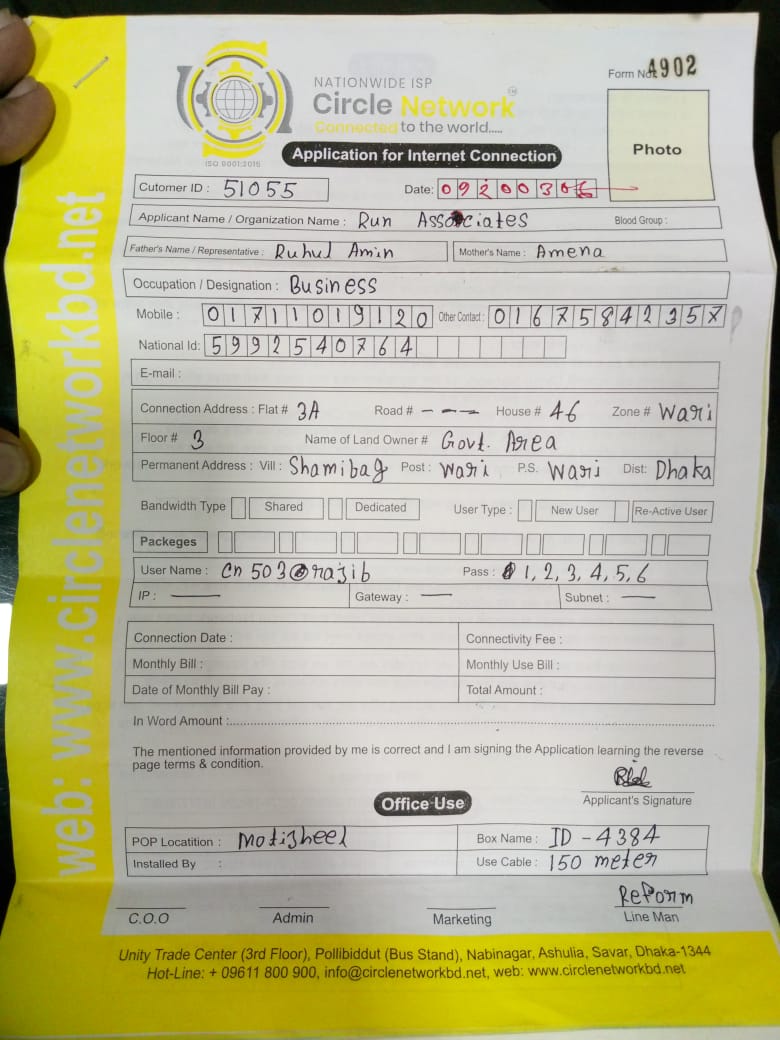 NATIONWIDE ISP
Circle Network
Connected to the world.....
ISO 9001:2015
Form No: 4902
Photo
Application for Internet Connection
Cutomer ID : 51055
Date: 09200306
Applicant Name / Organization Name : Run Associates Blood Group :
Father's Name / Representative : Ruhul Amin Mother's Name : Amena
Occupation / Designation : Business
Mobile : 01711019120 Other Contact : 01675842357
National Id: 5992540764
E-mail :
Connection Address : Flat # 3A Road # - - - House # 46 Zone # Wari
Floor # 3 Name of Land Owner # Govt. Area
Permanent Address : Vill : Shamibag Post : Wari P.S. Wari Dist: Dhaka
Bandwidth Type Shared Dedicated User Type : New User Re-Active User
Packeges
User Name : Cn503@rajib Pass : 1,2,3,4,5,6
IP : — Gateway : — Subnet : —
Connection Date : Connectivity Fee :
Monthly Bill : Monthly Use Bill :
Date of Monthly Bill Pay : Total Amount :
In Word Amount :
The mentioned information provided by me is correct and I am signing the Application learning the reverse
page terms & condition.
Applicant's Signature
Office Use
POP Locatition : Motijheel Box Name : ID - 4384
Installed By : Use Cable : 150 meter
C.O.O Admin Marketing Line Man
Unity Trade Center (3rd Floor), Pollibiddut (Bus Stand), Nabinagar, Ashulia, Savar, Dhaka-1344
Hot-Line: + 09611 800 900, info@circlenetworkbd.net, web: www.circlenetworkbd.net
web: www.circlenetworkbd.net